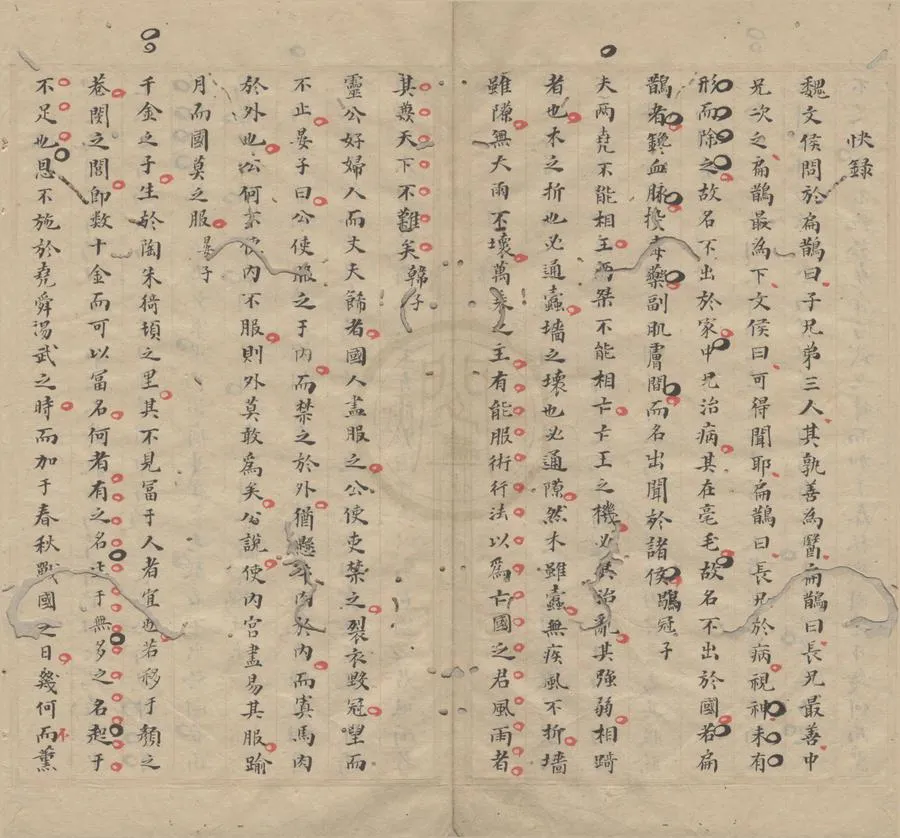 快録
魏文侯問於扁鵲曰子兄弟三人其孰善為醫扁鵲曰長兄最善中
兄次之扁鵲最為下文侯曰可得聞耶扁鵲曰長兄於病視神未有
形而除之故名不出於家中兄治病其在毫毛故名不出於國若扁
鵲者鑱血脉投毒藥副肌膚間而名出聞於諸侯 鶡冠子
夫兩堯不能相王兩桀不能相亡亡王之機必其治亂其強弱相踦
者也木之折也必通蠹墻之壞也必通隙然木雖蠹無疾風不折墻
雖隙無大雨不壞萬乘之主有能服術行法以為亡國之君風雨者
其兼天下不難矣 韓子
靈公好婦人而丈夫飾者國人盡服之公使吏禁之裂衣斷冠望而
不止晏子曰公使服之于内而禁之於外猶懸牛肉於内而賣馬肉
於外也公何不使内不服則外莫敢為矣公說使内宫盡易其服踰
月而國莫之服 晏子
千金之子生於陶朱猗頓之里其不見冨于人者宜也若移于顏之
巷閔之閭即数十金而可以冨名何者有之名生于無多之名起于
不足也恩不施於堯舜湯武之時而加于春秋戰國之日幾何而薰
不